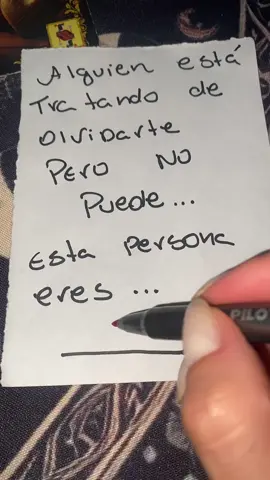 Alguien está
Tratando de
Olvidarte
Pero No
Puede...
Esta persona
eres ...
PILO